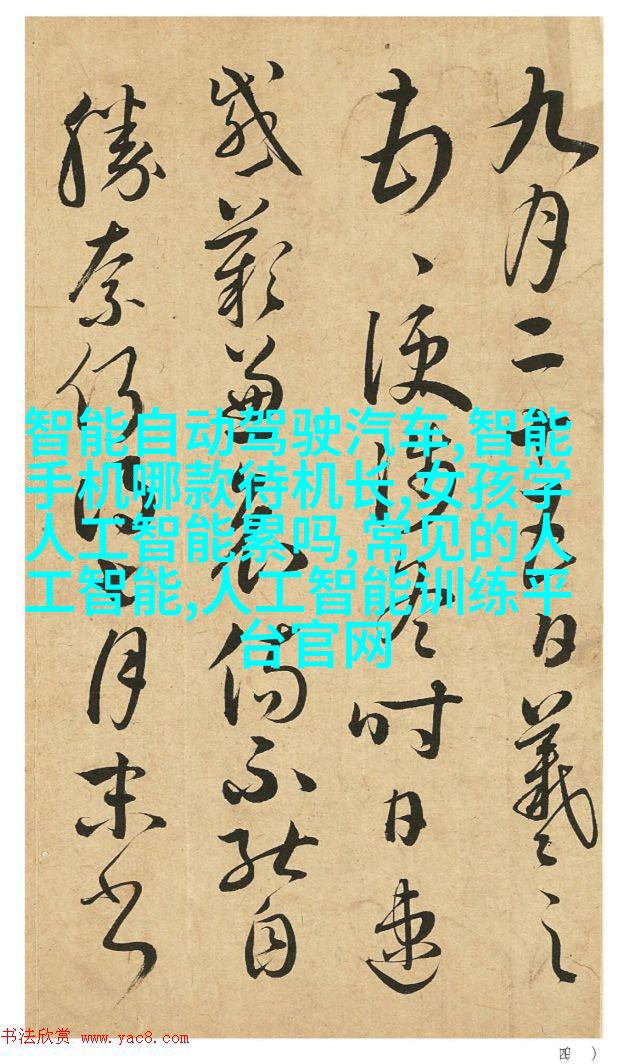 九月二十日羲之
便冬时日速
感歎兼哀傷不能自
勝奈何月末书
智能自动驾驶汽车,智能
手机哪款待机长,女孩学
人工智能累吗,常见的人
工智能,人工智能训练平
台官网
书法欣赏 www.yac8.com
四 )